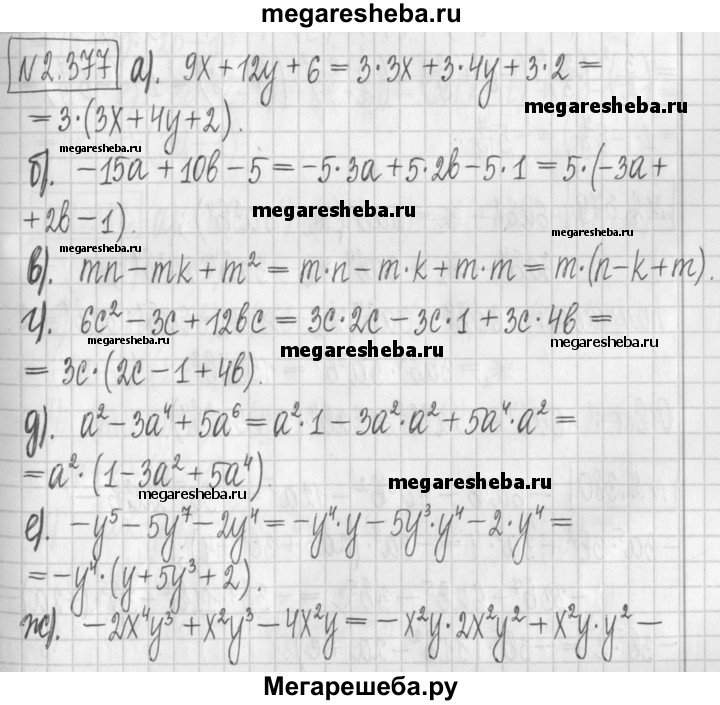 megaresheba.ru
№2.377 а). 9x + 12y + 6 = 3·3x + 3·4y + 3·2 =
megaresheba.ru
= 3·(3x + 4y + 2).
megaresheba.ru
б). -15a + 10b - 5 = -5·3a + 5·2b - 5·1 = 5·(-3a +
megaresheba.ru
+ 2b - 1).
megaresheba.ru
megaresheba.ru
в). mn - mk + m² = m·n - m·k + m·m = m·(n - k + m).
г). 6c² - 3c + 12bc = 3c·2c - 3c·1 + 3c·4b =
megaresheba.ru
megaresheba.ru
megaresheba.ru
= 3c·(2c - 1 + 4b).
д). a² - 3a⁴ + 5a⁶ = a²·1 - 3a²·a² + 5a⁴·a² =
= a²·(1 - 3a² + 5a⁴).
megaresheba.ru
megaresheba.ru
е). -y⁵ - 5y⁷ - 2y⁴ = -y⁴·y - 5y³·y⁴ - 2·y⁴ =
= -y⁴·(y + 5y³ + 2).
megaresheba.ru
megaresheba.ru
ж). -2x⁴y³ + x²y³ - 4x²y = -x²y·2x²y² + x²y·y² -
Мегарешеба.ру